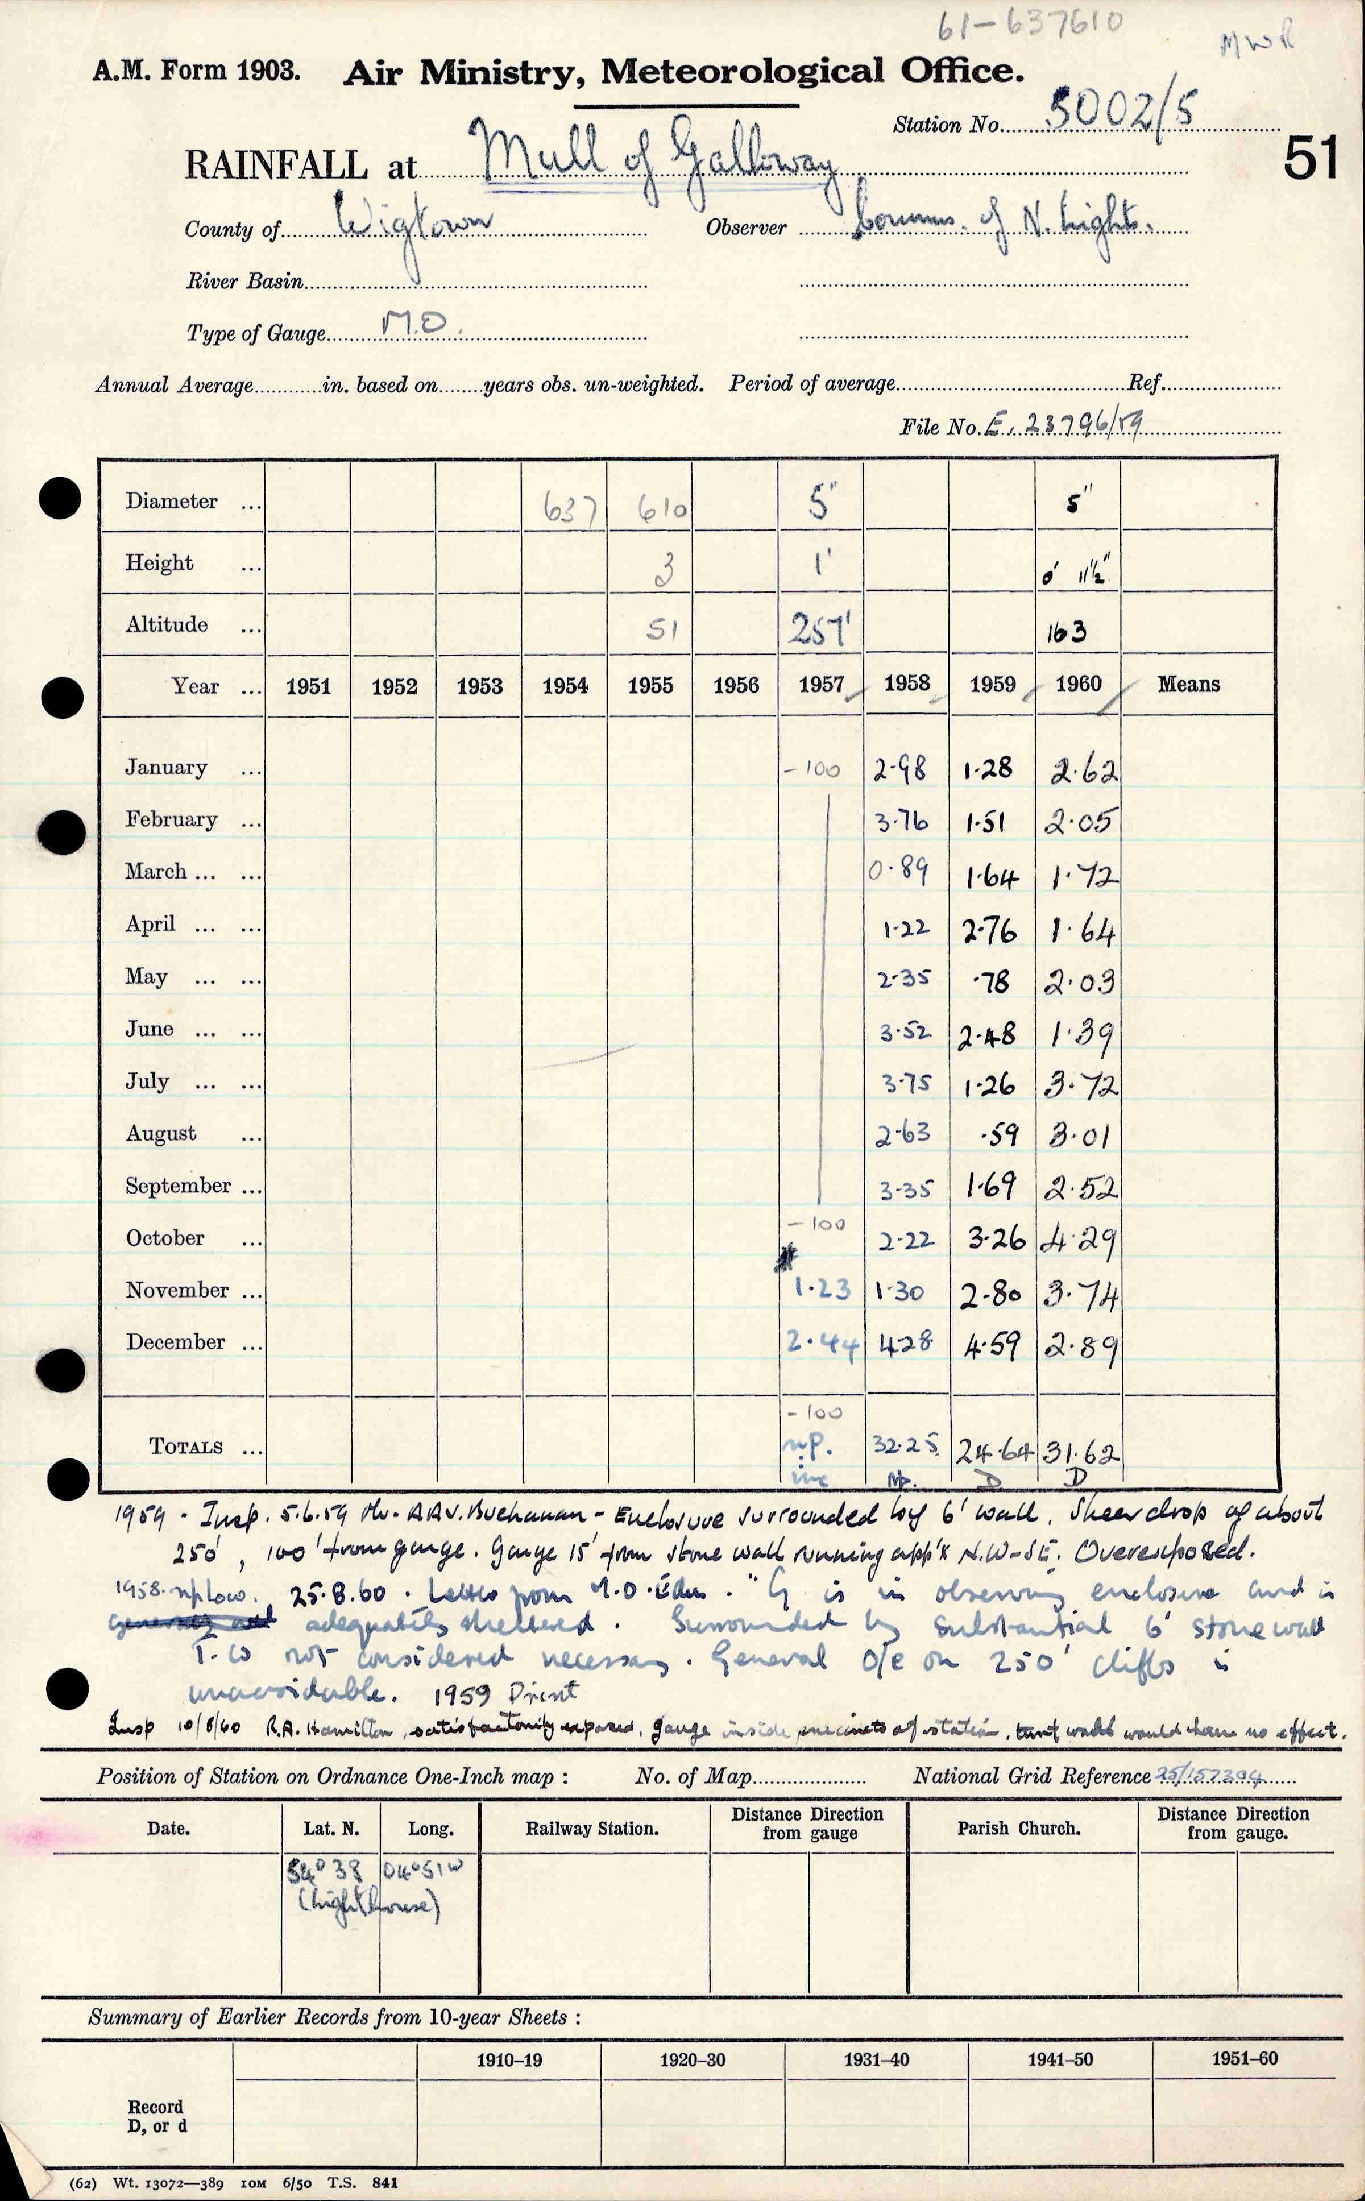 61-637610
MWR
A.M. Form 1903. Air Ministry, Meteorological Office.
Station No. 5002/5
51
RAINFALL at Mull of Galloway
County of Wigtown Observer Comms. of N. Lights.
River Basin
Type of Gauge M.O.
Annual Average in. based on years obs. un-weighted. Period of average Ref.
File No. E. 23796/59
Diameter ... 637 610 5" 5"
Height ... 3 1' 0' 11½"
Altitude ... 51 257' 163
Year ... 1951 1952 1953 1954 1955 1956 1957 1958 1959 1960 Means
January ... -100 2.98 1.28 2.62
February ... 3.76 1.51 2.05
March ... ... 0.89 1.64 1.72
April ... ... 1.22 2.76 1.64
May ... ... 2.35 .78 2.03
June ... ... 3.52 2.48 1.39
July ... ... 3.75 1.26 3.72
August ... 2.63 .59 3.01
September ... 3.35 1.69 2.52
October ... -100 2.22 3.26 4.29
November ... 1.23 1.30 2.80 3.74
December ... 2.44 4.28 4.59 2.89
-100
TOTALS ... np. 32.25 24.64 31.62
inc np. D D
1959 - Insp. 5.6.59 Mr. A.A.V. Buchanan - Enclosure surrounded by 6' wall. Sheer drop of about
250', 100' from gauge. Gauge 15' from stone wall running app'x N.W-SE. Overexposed.
1958. np Low. 25.8.60. Letter from M.O. Edin. "G is in observing enclosure and is
adequately sheltered. Surrounded by substantial 6' stone wall
T.W not considered necessary. General O/E on 250' cliffs is
unavoidable. 1959 Print
Insp 10/8/60 R.A. Hamilton, satisfactorily exposed, gauge inside precincts of station, turf walls would have no effect.
Position of Station on Ordnance One-Inch map : No. of Map National Grid Reference 25/157304
Date. Lat. N. Long. Railway Station. Distance Direction from gauge Parish Church. Distance Direction from gauge.
54° 38 04° 51 W
(Lighthouse)
Summary of Earlier Records from 10-year Sheets :
1910–19 1920–30 1931–40 1941–50 1951–60
Record
D, or d
(62) Wt. 13072—389 10M 6/50 T.S. 841